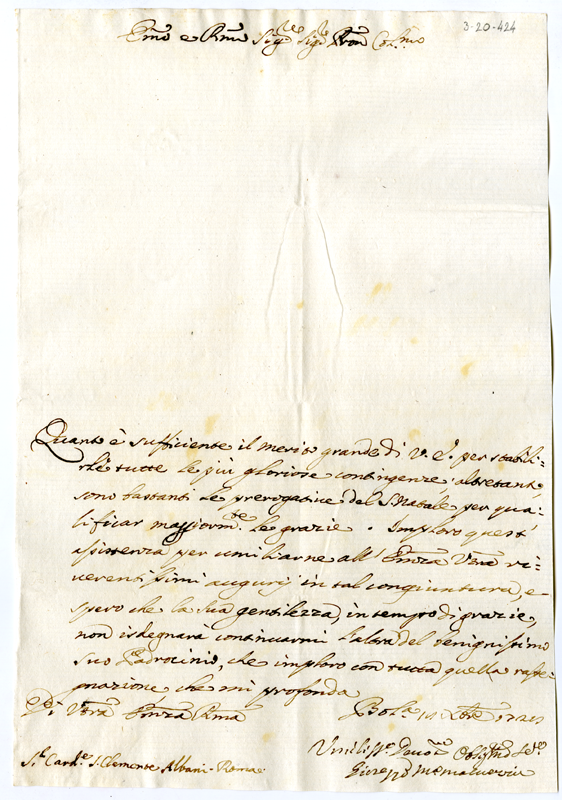 3-20-424
Emo e Rmo Sigre Sigre Pron Colmo
Quanto è sufficiente il merito grande di V. E. per stabili-
rle tutte le più gloriose contingenze, altretante
sono bastanti le prerogative del S. Natale per qua-
lificar maggiormte le grazie. Imploro quest'
assistenza per umiliarne all' Emza Vra ri-
verentissimi augurj in tal congiuntura, e
spero che la sua gentilezza, in tempo di grazie,
non isdegnarà continuarmi l'alta del benignissimo
suo Padrocinio, che imploro con tutta quella rasse-
gnazione che mi profonda
Di Vra Emza Rma Bola
Umilisso Devotmo Obligmo
Sr Carde S. Clemente Albani - Roma
Giuseppe